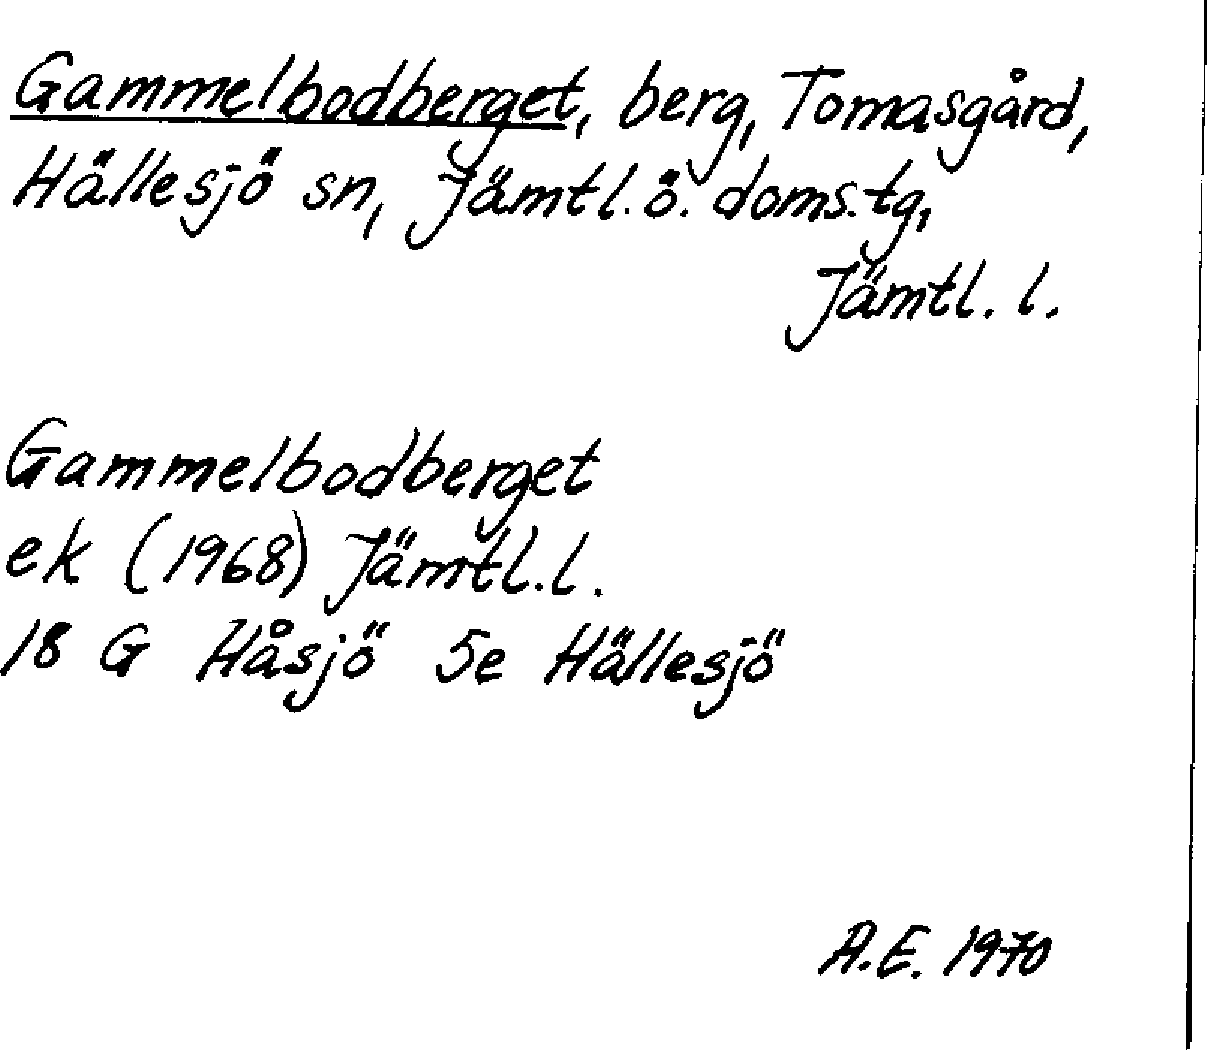 Gammelbodberget, berg, Tomasgård,
Hällesjö sn, Jämtl. ö. doms.tg,
Jämtl. l.
Gammelbodberget
ek (1968) Jämtl. l.
18 G Håsjö 5e Hällesjö
A.E. 1970